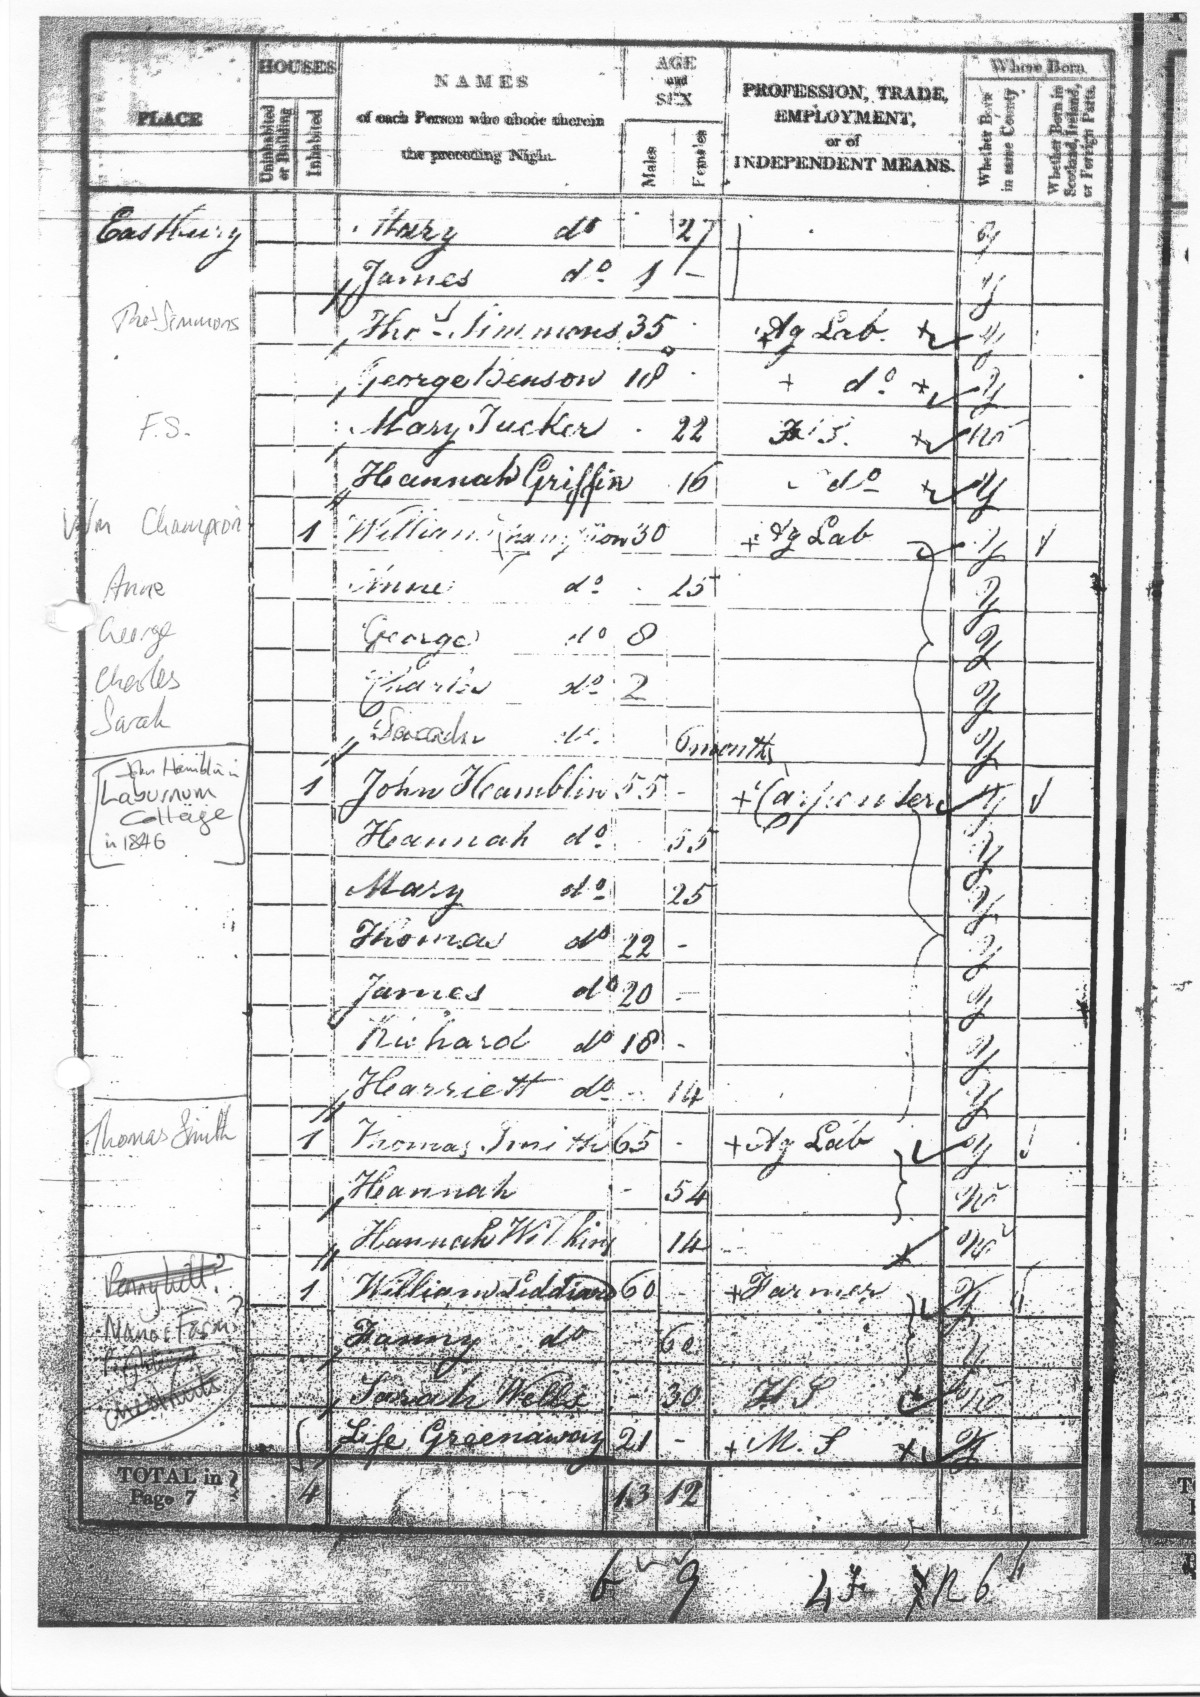 PLACE
HOUSES
Uninhabited or Building
Inhabited
NAMES
of each Person who abode therein
the preceding Night.
AGE
and
SEX
Males
Females
PROFESSION, TRADE,
EMPLOYMENT,
or of
INDEPENDENT MEANS.
Where Born
Whether Born in same County
Whether Born in Scotland, Ireland, or Foreign Parts.
Eastbury Mary do 27 Y
James do 1 - Y
Thos Simmons Thos Simmons 35 - Ag Lab Y
George Benson 18 - do Y
F.S. Mary Tucker - 22 F S. No
Hannah Griffin 16 do Y
Wm Champion 1 William Champion 30 Ag Lab Y
Anne Anne do - 25 Y
George George do 8 Y
Charles Charles do 2 Y
Sarah Sarah do 6 months Y
John Hamblin in
Laburnum
Cottage
in 1846
1 John Hamblin 55 - Carpenter Y
Hannah do 55 Y
Mary do 25 Y
Thomas do 22 - Y
James do 20 - Y
Richard do 18 - Y
Harriett do - 14 Y
Thomas Smith 1 Thomas Smith 65 - Ag Lab Y
Hannah - 54 No
Hannah Wilkins 14 No
Pennyhill? 1 William Liddiard 60 - Farmer Y
Manor Farm? Fanny do - 60 Y
Sarah Wells - 30 F S No
Chestnuts
Greenaway 21 - M. S Y
TOTAL in
Page 7 4 13 12
6 9 4F 6